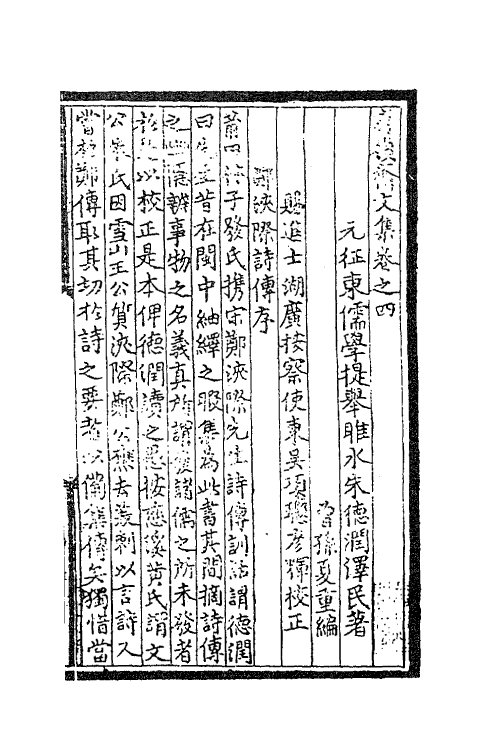 齋文集卷之四
元征東儒學提舉睢水朱德潤澤民著
曾孫夏重編
賜進士湖廣按察使東吳項璁彥輝校正
鄭浹際詩傳序
莆田 子發氏携宋鄭浹際先生詩傳訓詁謂德潤
曰 昔在閩中紬繹之暇集為此書其間摘詩傳
之 語辨事物之名義真所謂發諸儒之所未發者
於 以校正是本俾德潤讀之愚按 氏謂文
公朱氏因雪山王公質浹際鄭公 去美刺以言詩又
當 鄭傳取其切於詩之要者以備集傳矣獨惜當